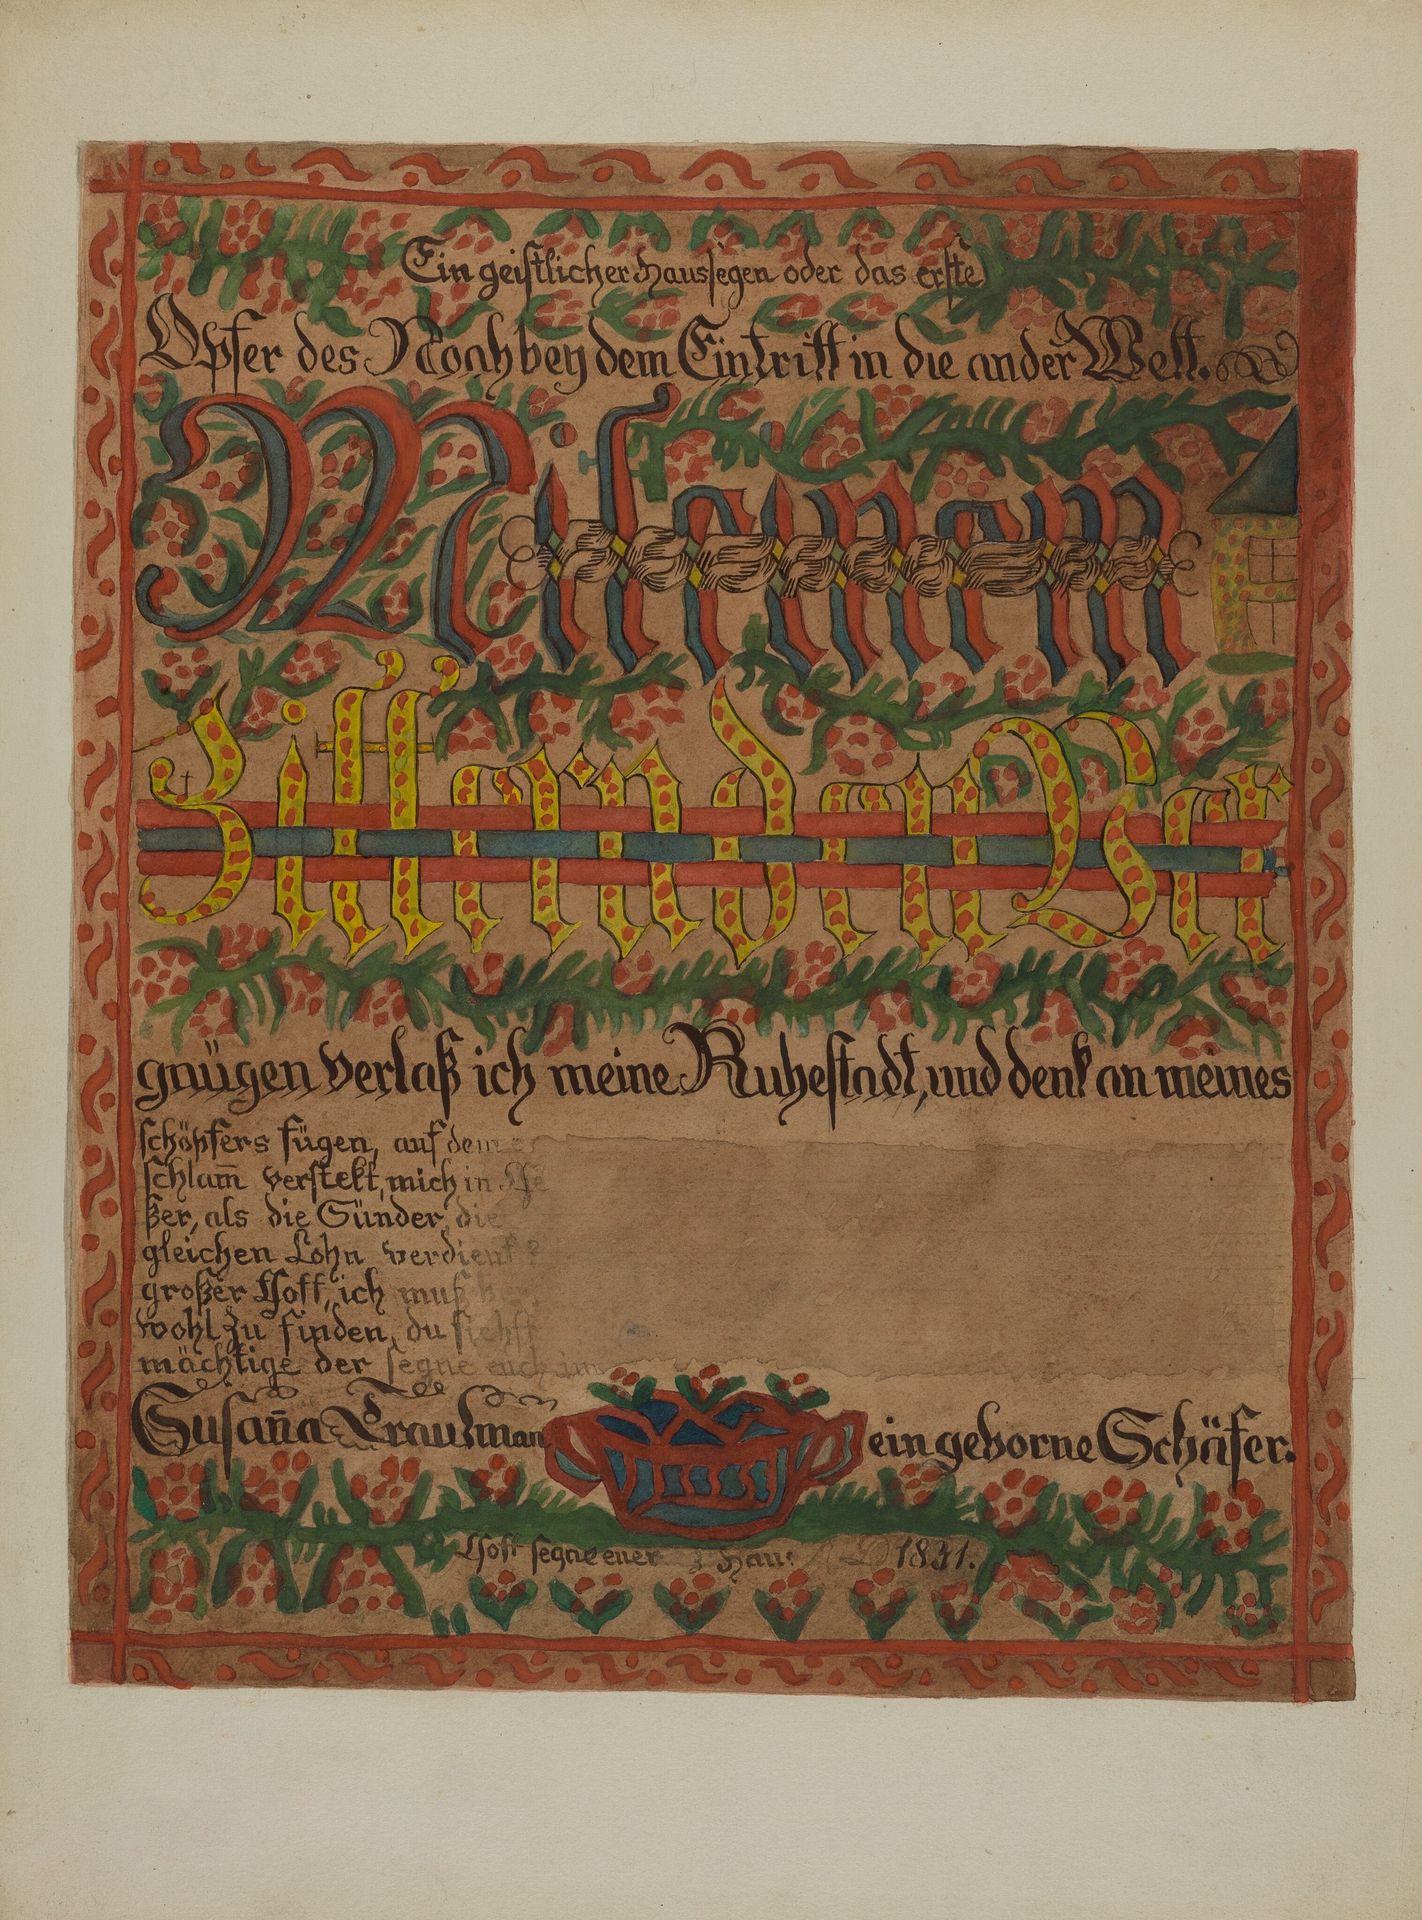 Ein geistlicher Haussegen oder das erste
Opfer des Noah bey dem Eintritt in die ander Welt.
Mit einem
Zittern den Ver
gnügen verlaß ich meine Ruhestadt, und denk an meines
schöpfers fügen, auf dem
schlam̄ verstekt, mich in
ßer, als die Sünder, die
gleichen Lohn verdient
großer Gott, ich muß
wohl zu finden, du siehst
mächtige der segne euch im
Susan̄a Trautman ein geborne Schäfer.
Gott segne euer Haus A D 1831.